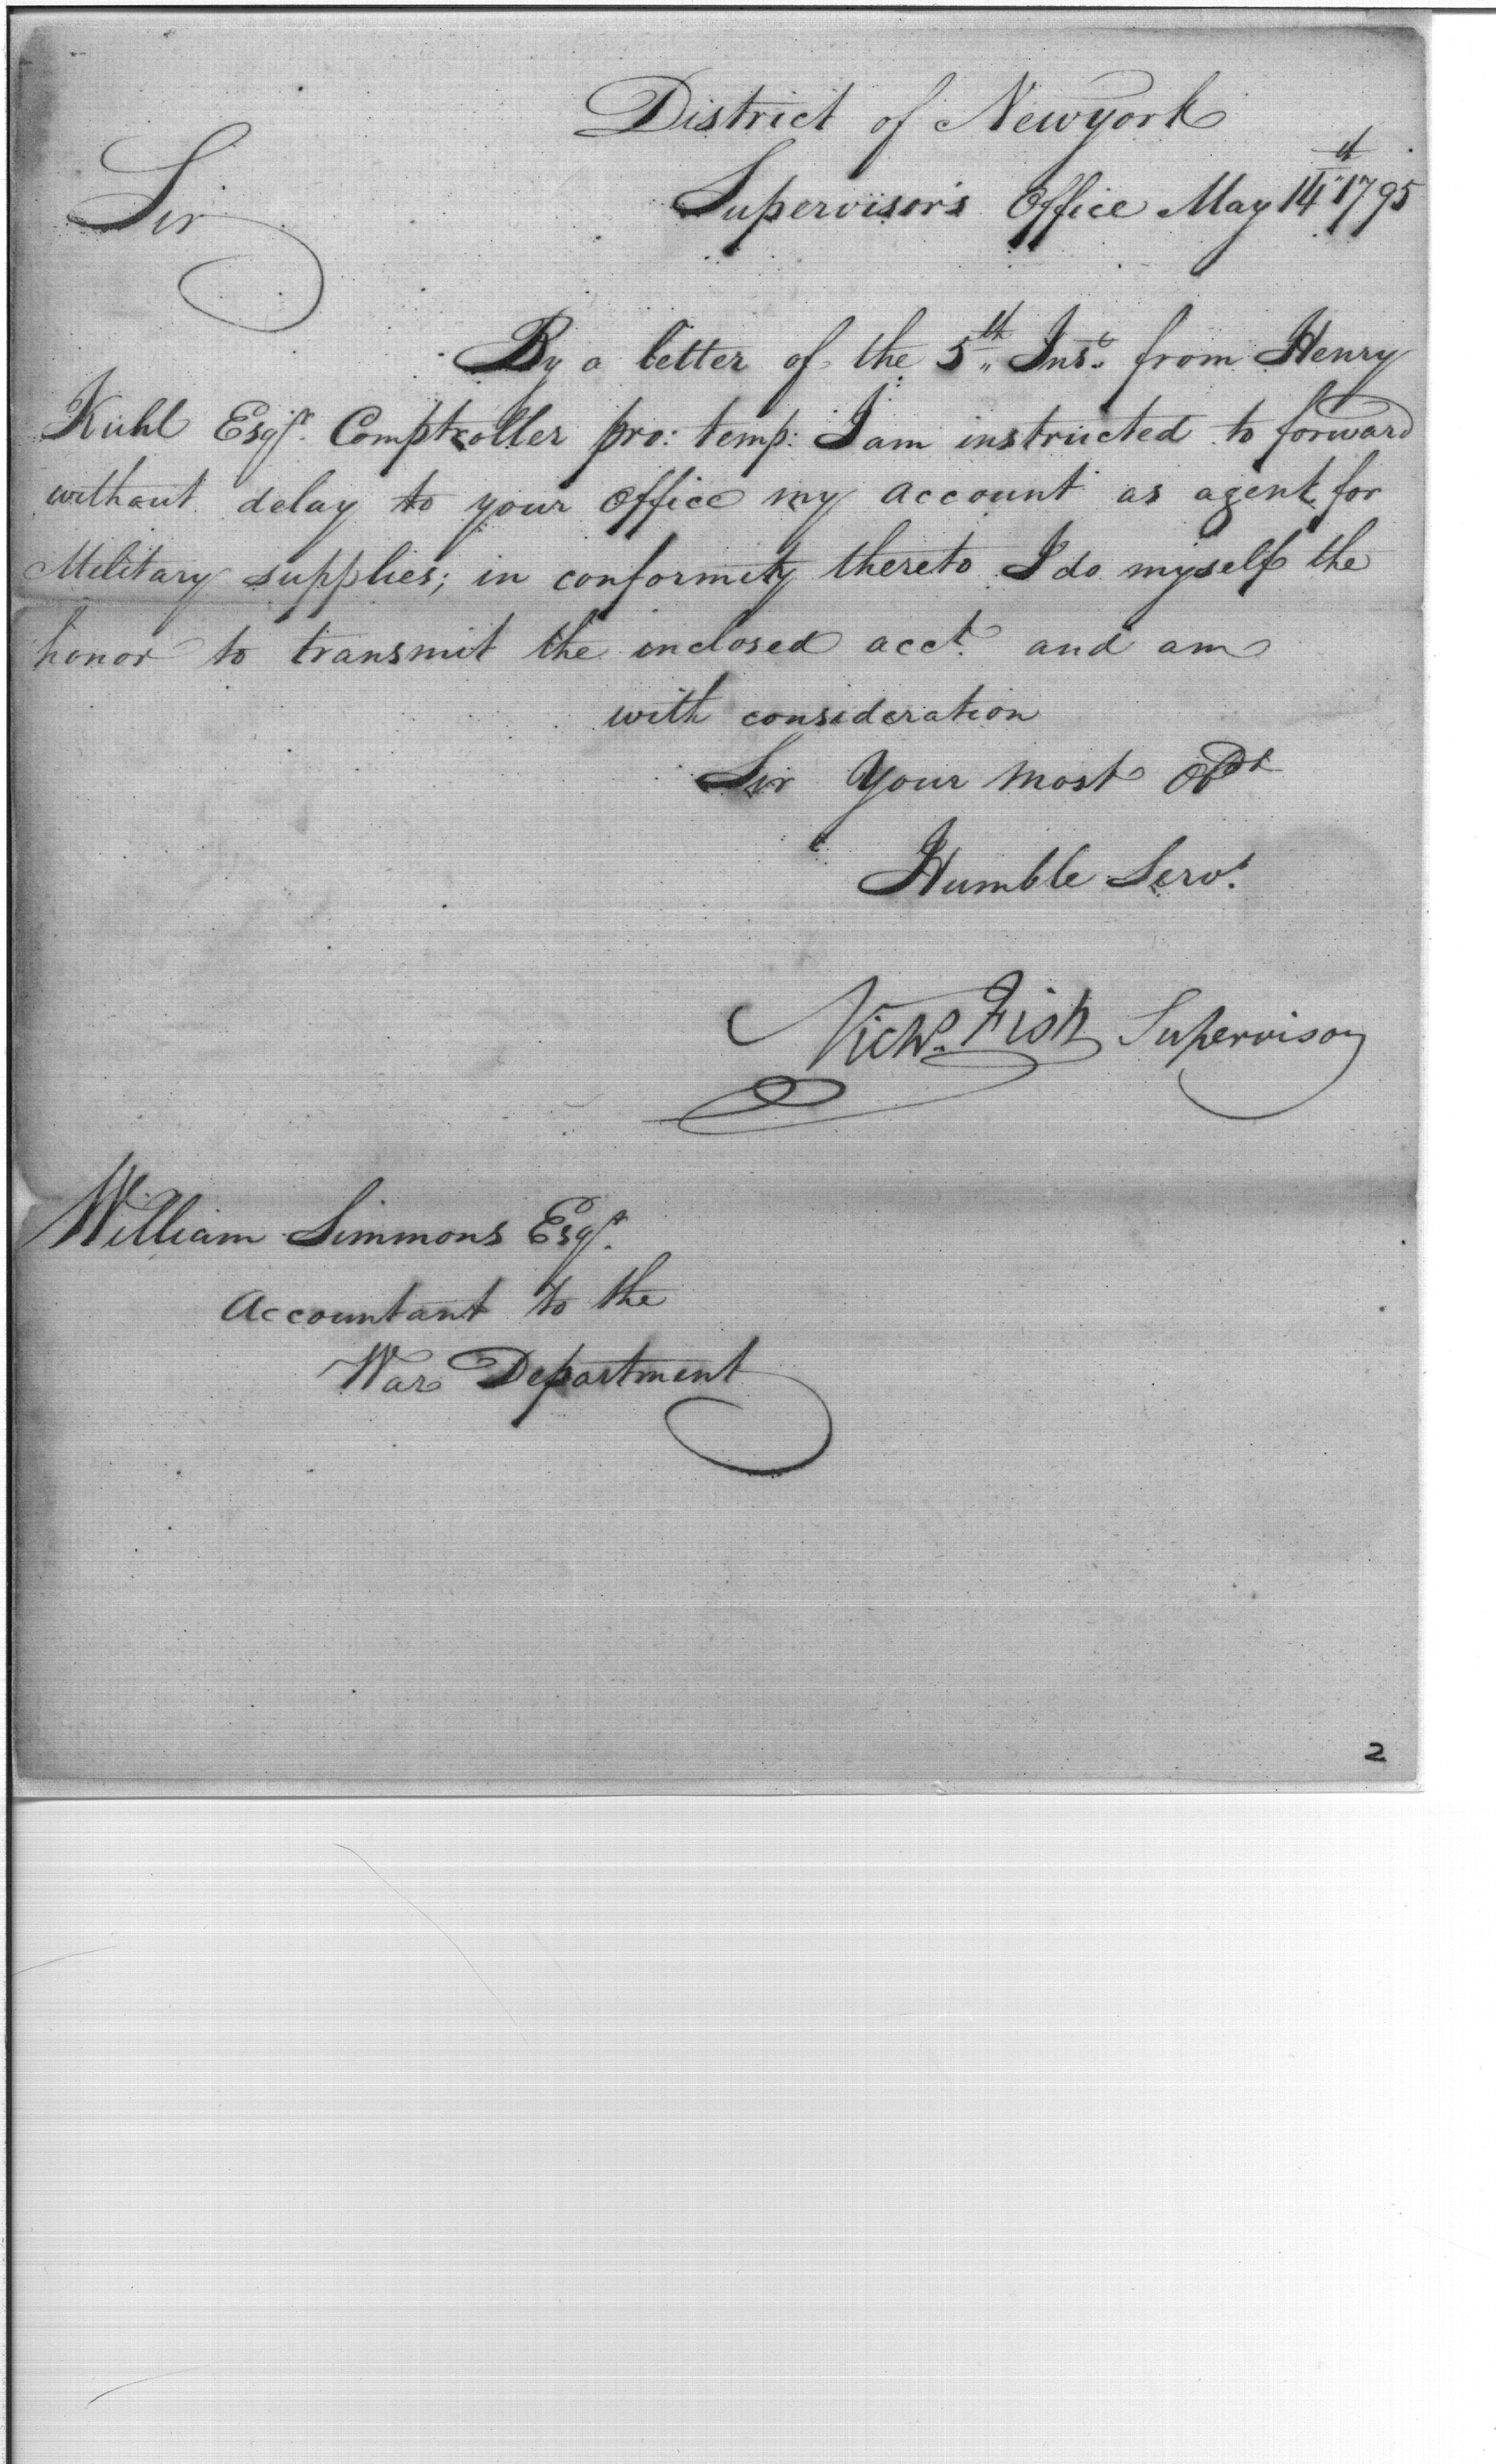 District of Newyork
Sir
Supervisor's Office May 14th 1795
By a letter of the 5th Inst. from Henry
Kuhl Esqr. Comptroller pro: temp: I am instructed to forward
without delay to your office my account as agent for
Military supplies; in conformity thereto I do myself the
honor to transmit the inclosed acct. and am
with consideration
Sir Your most Obdt
Humble Servt.
Nichs. Fish Supervisor
William Simmons Esqr.
Accountant to the
War Department
2